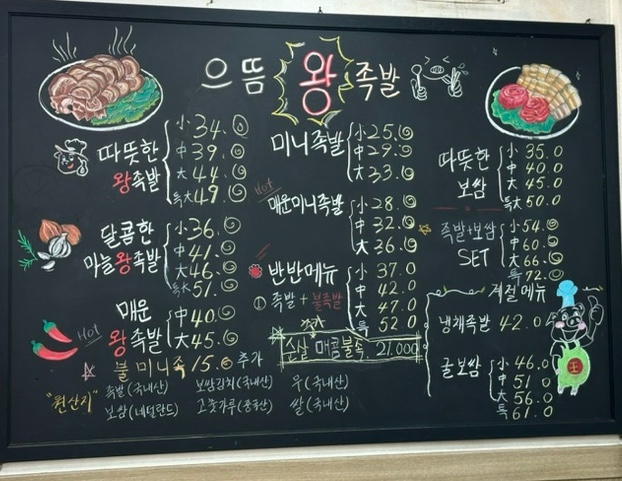 으뜸 왕 족발
따뜻한 왕족발
小 34.0
中 39.0
大 44.0
특大 49.0
달콤한 마늘왕족발
小 36.0
中 41.0
大 46.0
특大 51.0
Hot
매운 왕족발
中 40.0
大 45.0
불미니족 15.0 추가
미니족발
小 25.0
中 29.0
大 33.0
Hot
매운미니족발
小 28.0
中 32.0
大 36.0
반반메뉴
족발 + 불족발
小 37.0
中 42.0
大 47.0
특 52.0
순살 매콤불족. 21.000
따뜻한 보쌈
小 35.0
中 40.0
大 45.0
특大 50.0
족발+보쌈 SET
小 54.0
中 60.0
大 66.0
특 72.0
계절 메뉴
냉채족발 42.0
굴보쌈
小 46.0
中 51.0
大 56.0
특 61.0
王
"원산지"
족발(국내산) 보쌈김치(국내산) 무(국내산)
보쌈(네덜란드) 고춧가루(중국산) 쌀(국내산)